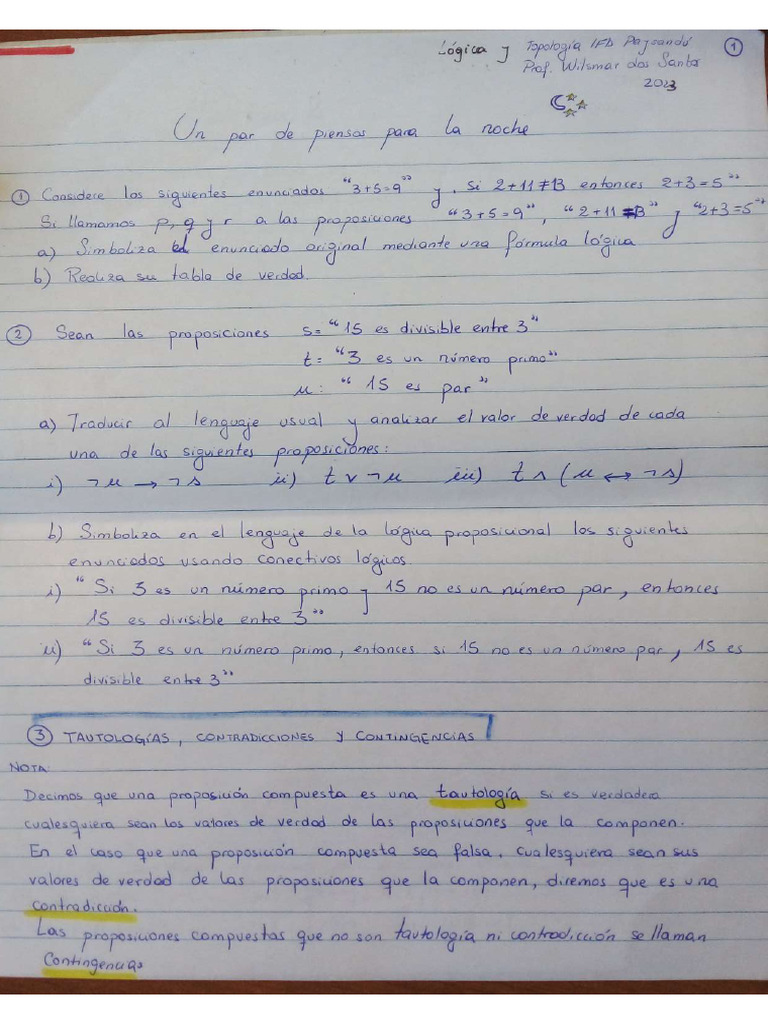 Lógica y Topología IFD Paysandú ①
Prof. Wilsmar dos Santos
2023
Un par de piensos para la noche
① Considere los siguientes enunciados "3+5=9" y. Si 2+11≠13 entonces 2+3=5"
Si llamamos p, q y r a las proposiciones "3+5=9", "2+11≠13" y "2+3=5"
a) Simboliza el enunciado original mediante una fórmula lógica
b) Realiza su tabla de verdad.
② Sean las proposiciones s="15 es divisible entre 3"
t= "3 es un número primo"
u: "15 es par"
a) Traducir al lenguaje usual y analizar el valor de verdad de cada
una de las siguientes proposiciones:
i) ¬u → ¬s ii) t ∨ ¬u iii) t ∧ (u ↔ ¬s)
b) Simboliza en el lenguaje de la lógica proposicional los siguientes
enunciados usando conectivos lógicos.
i) "Si 3 es un número primo y 15 no es un número par, entonces
15 es divisible entre 3"
ii) "Si 3 es un número primo, entonces si 15 no es un número par, 15 es
divisible entre 3"
③ TAUTOLOGÍAS, CONTRADICCIONES Y CONTINGENCIAS
NOTA:
Decimos que una proposición compuesta es una tautología si es verdadera
cualesquiera sean los valores de verdad de las proposiciones que la componen.
En el caso que una proposición compuesta sea falsa, cualesquiera sean sus
valores de verdad de las proposiciones que la componen, diremos que es una
contradicción.
Las proposiciones compuestas que no son tautología ni contradicción se llaman
Contingencias